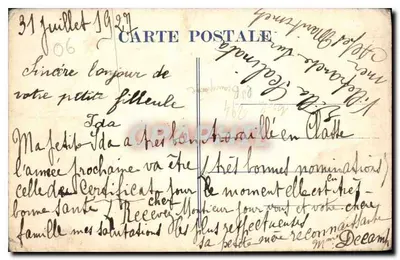 31 juillet 1927
CARTE POSTALE
06
Sincère bonjour de
votre petite filleule
Ida
Villa Scalinata
Villefranche sur
mer
Alpes Maritimes
Ma petite Ida a très bon travaillé en Classe
l'année prochaine va être / très bonnes nominations /
celle du Certificat pour le moment elle est très
bonne santé / Recevez cher Monsieur pour vous et votre chère
famille mes salutations les plus respectueuses
sa petite mère reconnaissante
Mme Decamb